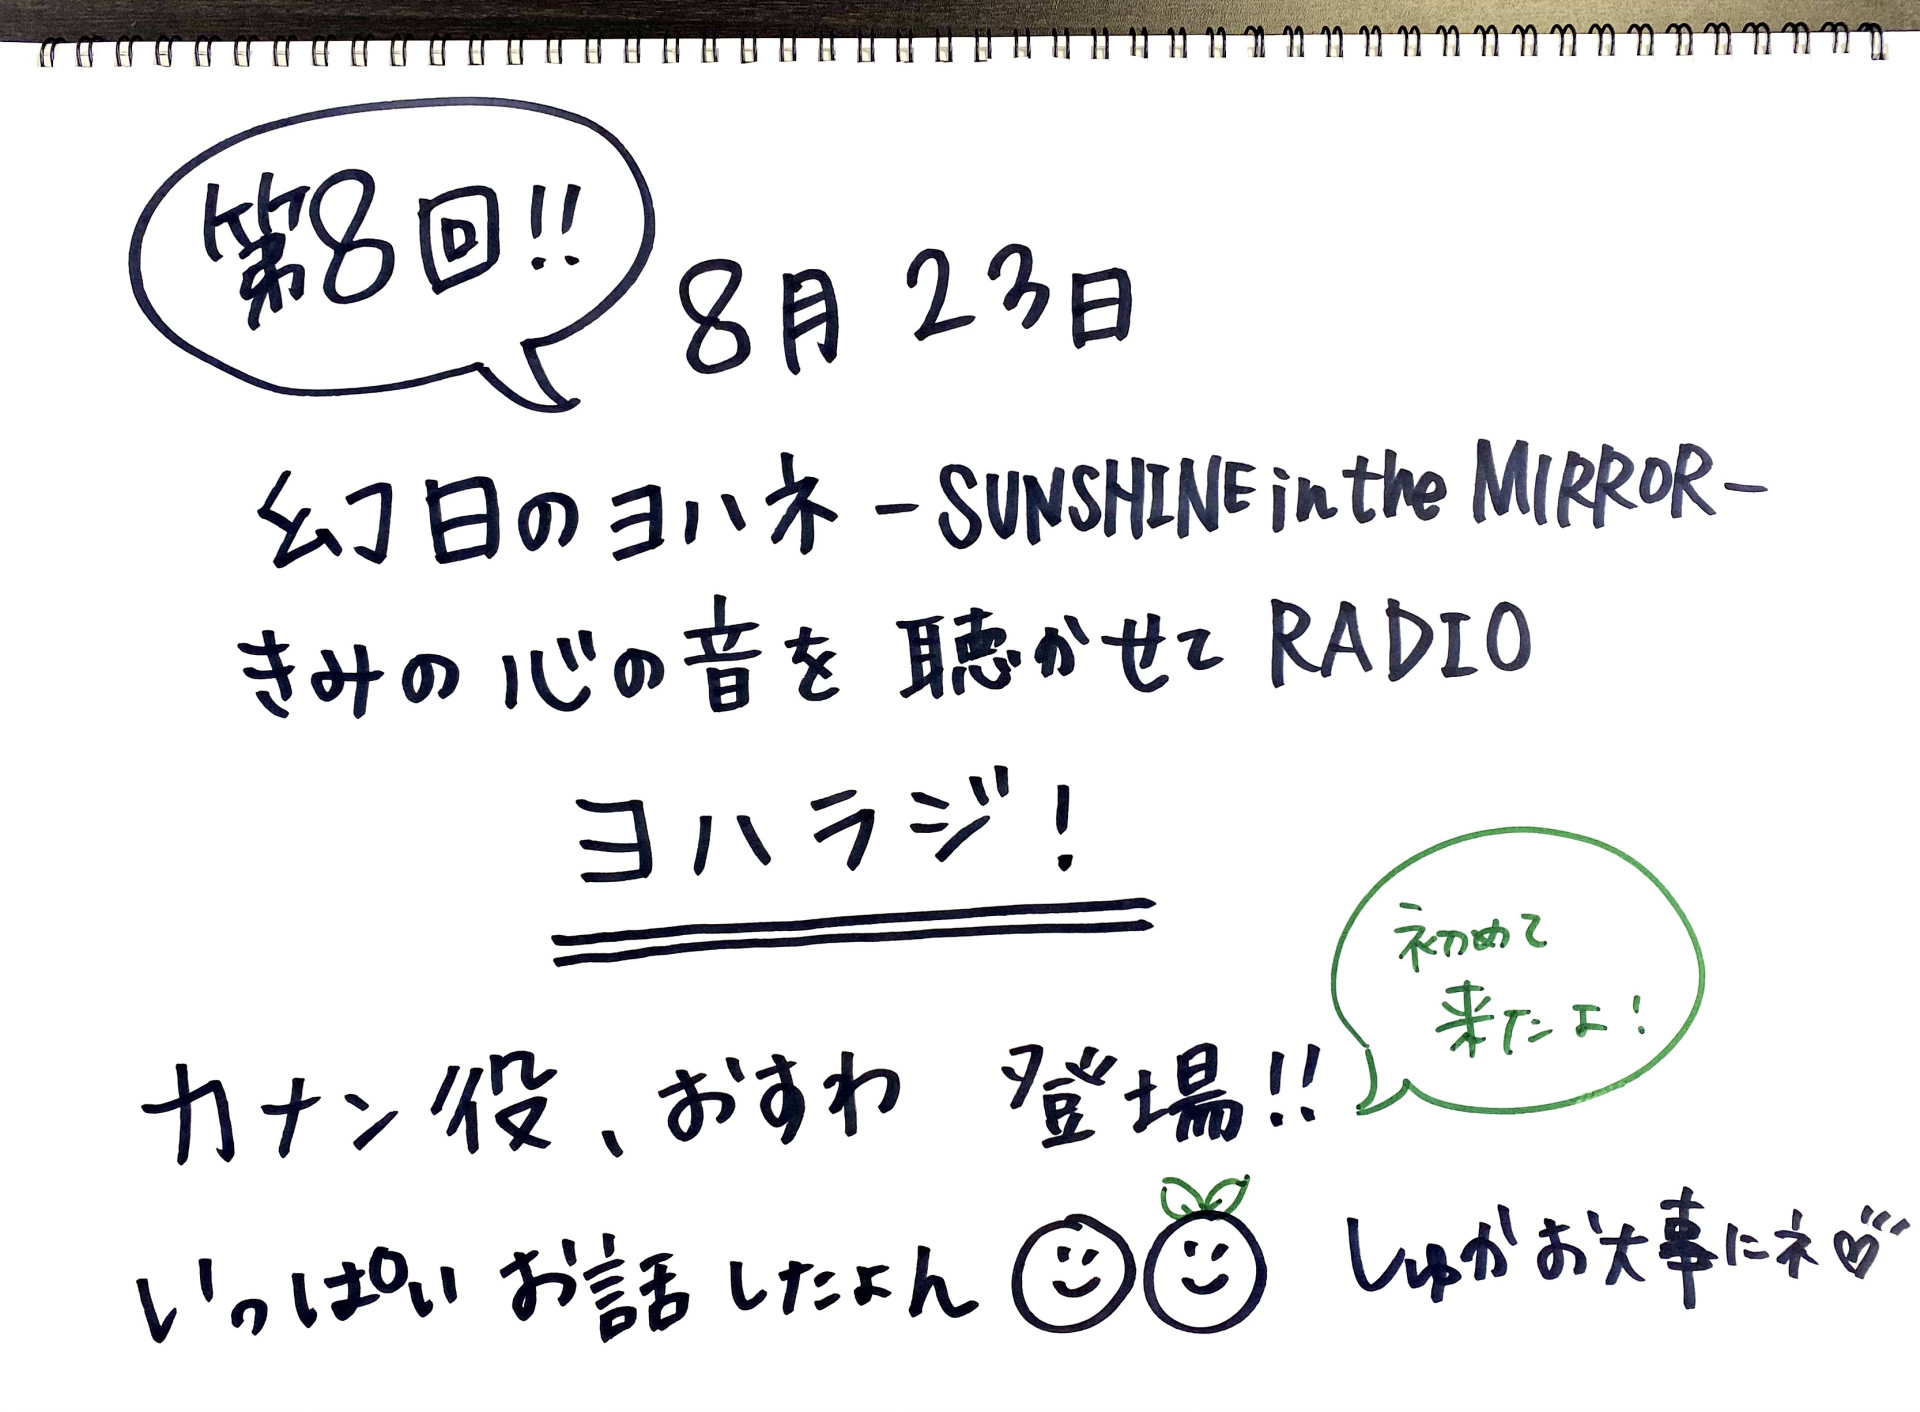 第8回!!
8月23日
幻日のヨハネ-SUNSHINE in the MIRROR-
きみの心の音を聴かせてRADIO
ヨハラジ!
初めて
来たよ!
カナン役、おすわ 登場!!
いっぱいお話したよん
しゅかお大事にネ♡